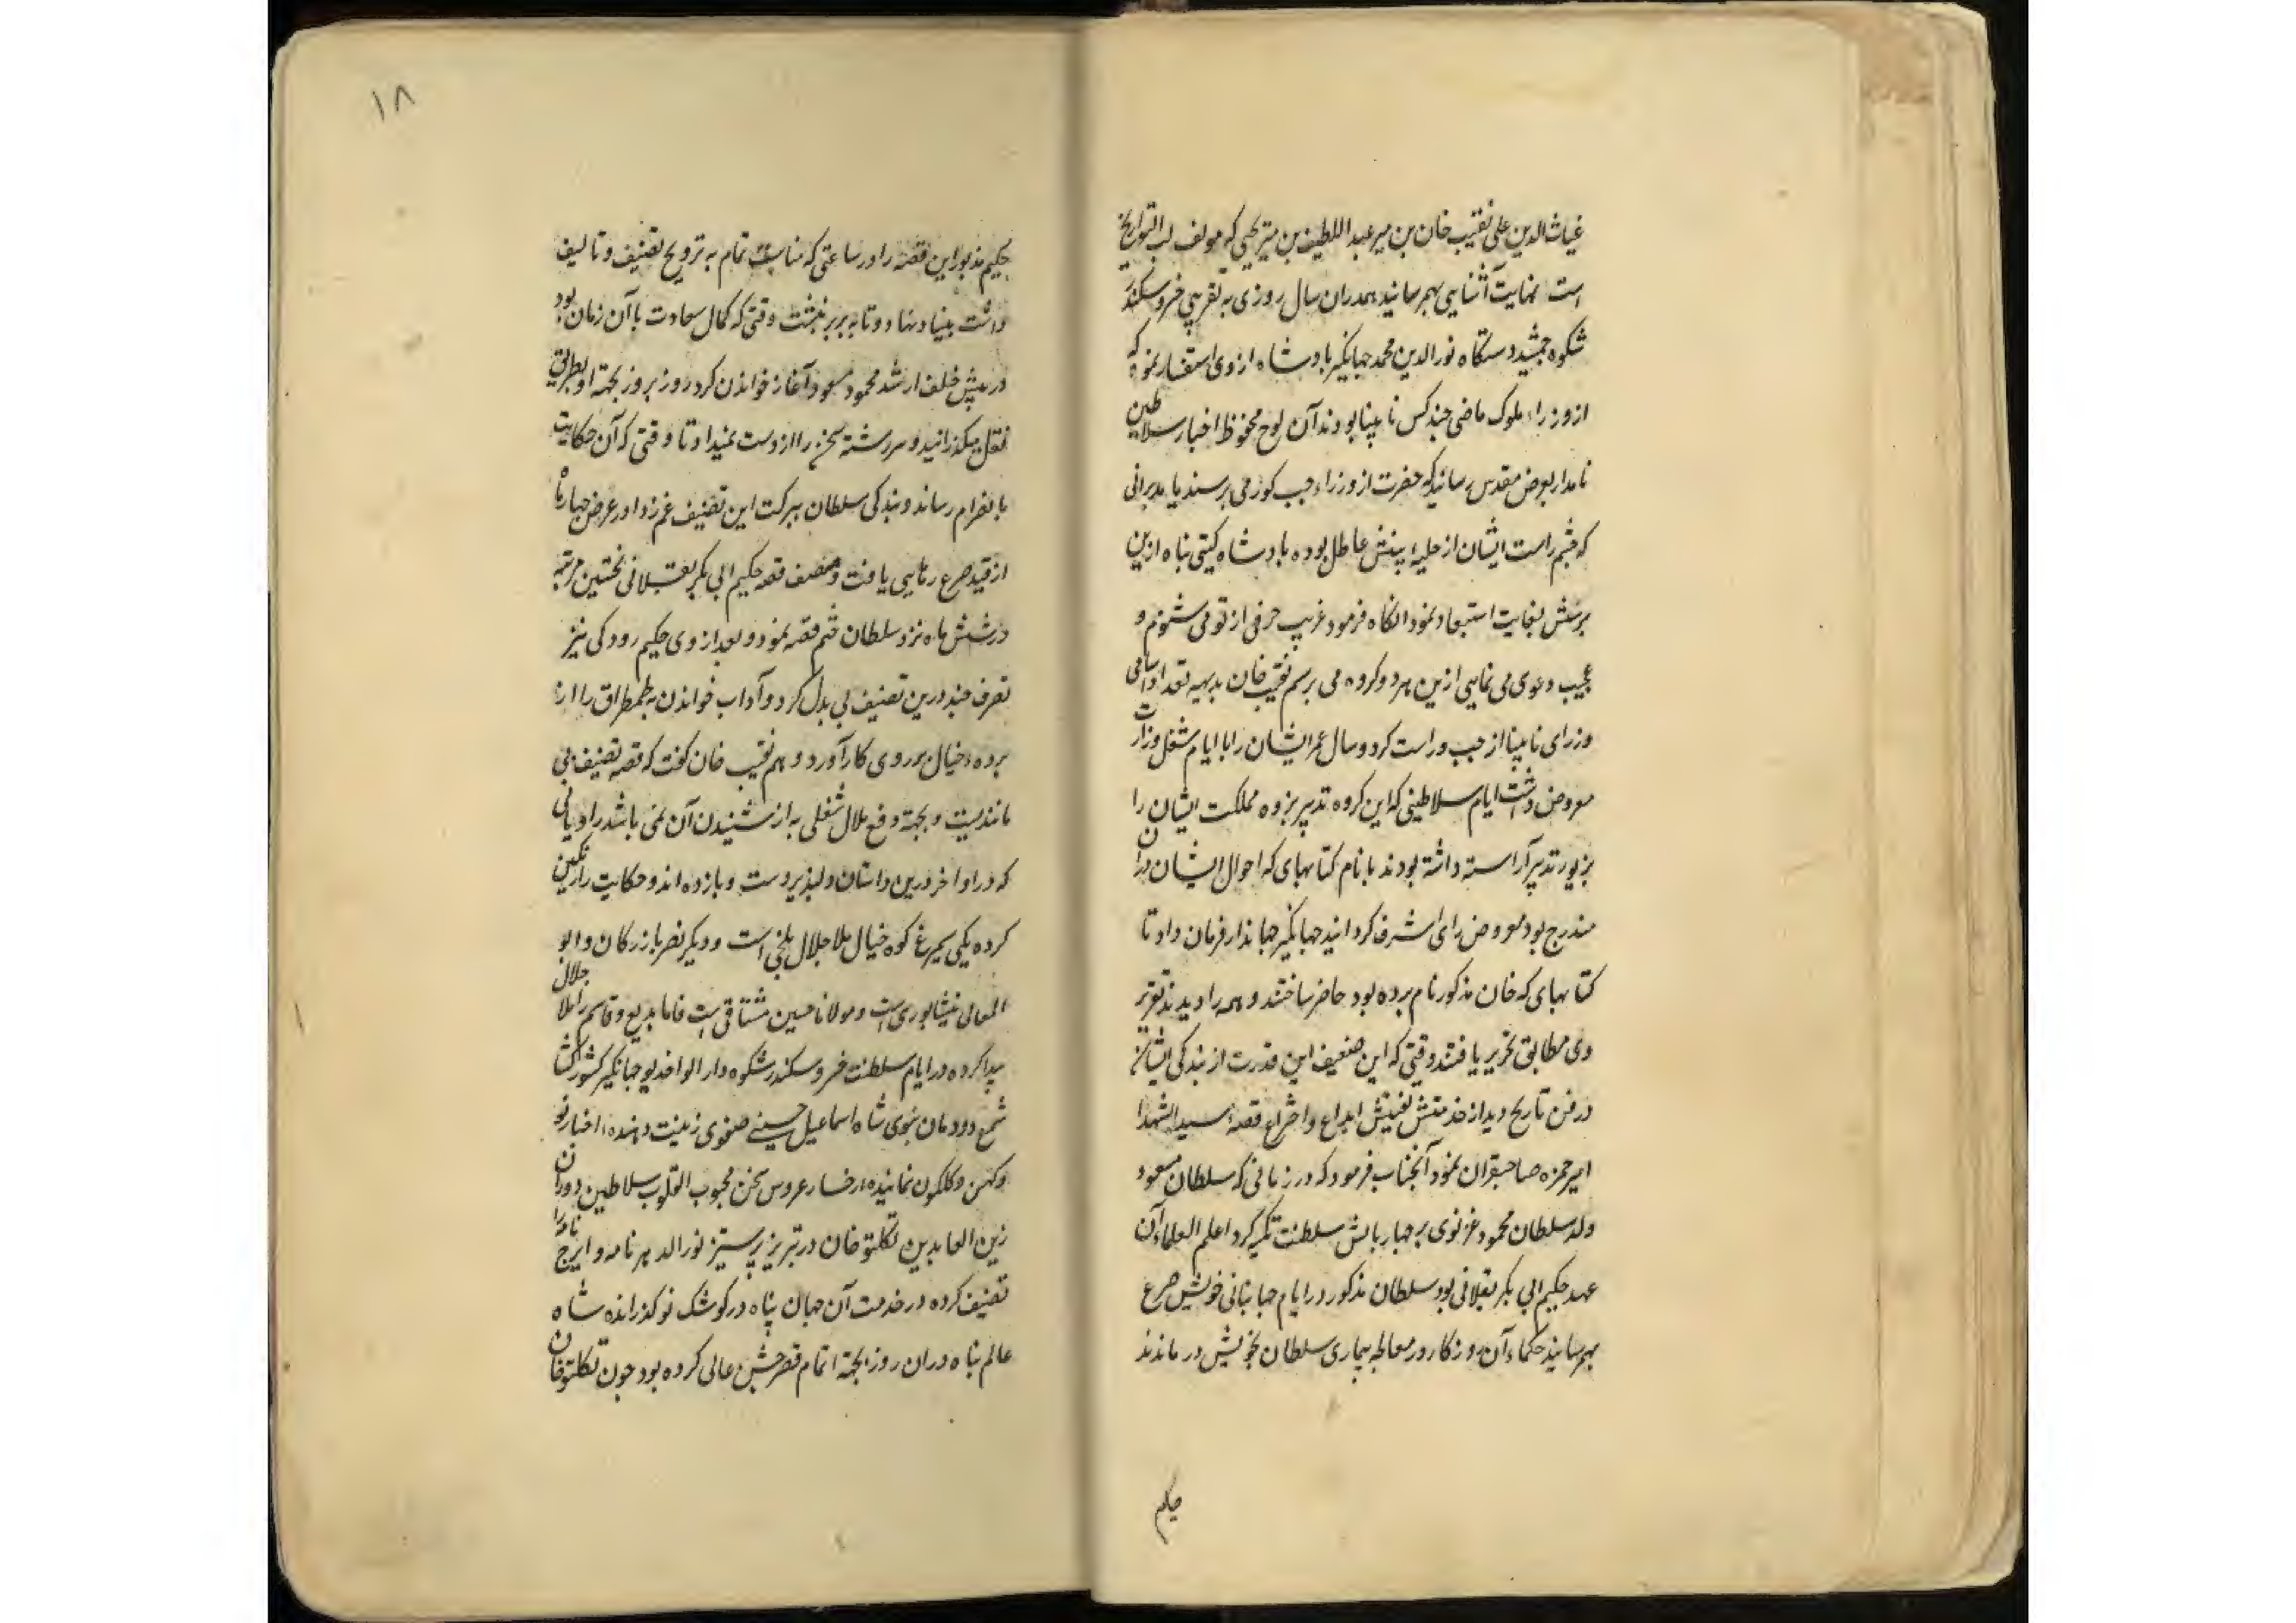 غیاث الدین علی نقیب خان بن میر عبد اللطیف بن میر یحیی که مولف لب التواریخ
است نهایت آشنایی بهم رسانید همدران سال روزی به تقریبی خسرو سکندر
شکوه جمشید دستگاه نورالدین محمد جهانگیر بادشاه از وی استفسار نمود که
از وزراء ملوک ماضی چند کس نابینا بودند آن لوح محفوظ اخبار سلاطین
نامدار بعرض مقدس رسانید که حضرت از وزراء چپ کور می پرسند یا مدبرانی
که چشم راست ایشان از حلیهٔ بینش عاطل بوده بادشاه گیتی پناه ازین
پرسش بغایت استبعاد نمود انگاه فرمود غریب حرفی از تو می شنوم و
عجیب دعوی می نمایی ازین هر دو گروه می پرسم نقیب خان بدیهه تعداد اسامی
وزرای نابینا از چپ و راست کرد و سال عمر ایشان را با ایام شغل وزارت
معروض داشت ایام سلاطینی که این گروه تدبیر پژوه مملکت ایشان را
بزیور تدبیر آراسته داشته بودند با نام کتابهای که احوال ایشان دران
مندرج بود معروض رای اشرف گردانید جهانگیر جهاندار فرمان داد تا
کتابهای که خان مذکور نام برده بود حاضر ساختند و همه را دیدند تقریر
وی مطابق تحریر یافتند وقتی که این ضعیف این قدرت از بندگی ایشان
در فن تاریخ دید از خدمتش تفتیش ابداع و اختراع قصهٔ سید الشهدا
امیر حمزه صاحبقران نمود آنجناب فرمود که در زمانی که سلطان مسعود
ولد سلطان محمود غزنوی بر چهار بالش سلطنت تکیه کرد اعلم العلماء آن
عهد حکیم ابی بکر بقلانی بود سلطان مذکور در ایام جهانبانی خویش صرع
بهم رسانید حکماء آن روزگار در معالجه بیماری سلطان بخویش در ماندند
حکیم
۱۸
حکیم مذبور این قصه را در ساعتی که مناسبت تمام به ترویج تصنیف و تالیف
داشت بنیاد نهاد و تا به بربر نبشت وقتی که کمال سعادت با آن زمان بود
در پیش خلف ارشد محمود مسعود آغاز خواندن کرد روز بروز بجهة او بطریق
نقل میگذرانید و سررشتهٔ سخن را از دست نمیداد تا وقتی که آن حکایت
بانصرام رساند و بندگی سلطان ببرکت این تصنیف غم زدا در عرض چهار ماه
از قید صرع رهایی یافت و مصنف قصه حکیم ابی بکر بقلانی نخستین مرتبه
در شش ماه نزد سلطان ختم قصه نمود و بعد از وی حکیم رودکی نیز
تصرف چند درین تصنیف بی بدل کرد و آداب خواندن به طمطراق را از
پرده خیال بر روی کار آورد و هم نقیب خان گفت که قصه تصنیف بی
مانندیست و بجهة دفع ملال شغلی به از شنیدن آن نمی باشد راویانی
که در اواخر درین داستان دلپذیر دست و پا زده اند و حکایت رنگین
کرده یکی سیمرغ کوه خیال ملا جلال بلخی است و دیگر نصر بازرگان و ابو
المعالی نیشابوری است و مولانا حسین مشتاقی است فاما بدیع و قاسم را ملا جلال
پیدا کرده در ایام سلطنت خسرو سکندر شکوه دارالوا خدیو جهانگیر کشور کشا
شمع دودمان نبوی شاه اسماعیل حسینی صفوی زینت دهنده اخبار نو
و کهن و گلگون نماینده رخسار عروس سخن محبوب القلوب سلاطین دوران
زین العابدین تکلتو خان در تبریز پرستیز نورالدهر نامه و ایرج نامه را
تصنیف کرده در خدمت آن جهان پناه در کوشک نو گذرانده شاه
عالم پناه دران روز بجهة اتمام قصر جشن عالی کرده بود چون تکلتو خان